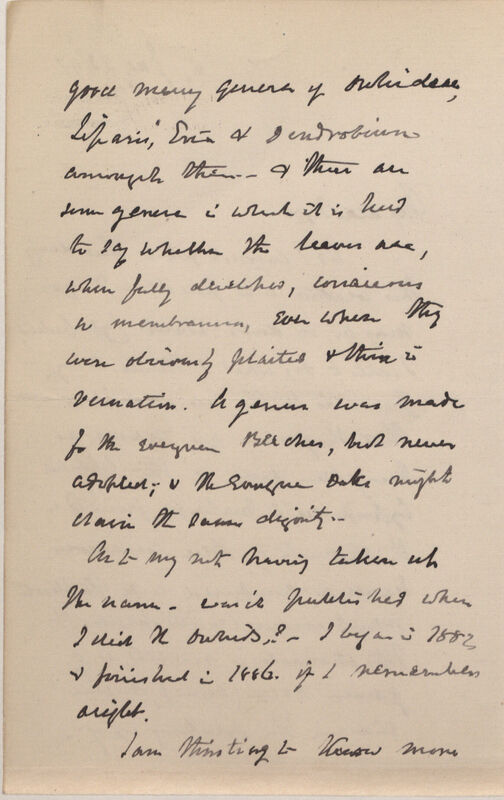 good many genera of Orchideae,
Liparis, Eria & Dendrobium
amongst them – & there are
some genera in which it is hard
to say whether the leaves are,
when fully developed, coriaceous
or membranous, even where they
were obviously plaited & thin in
vernation. A genus was made
for the evergreen Beeches, but never
adopted; & the Evergreen Oaks might
claim the same dignity. –
As to my not having taken up
the name – was it published when
I did the Orchids,? – I began in 1882
& finished in 1886. if I remember
aright.
I am thirsting to know more